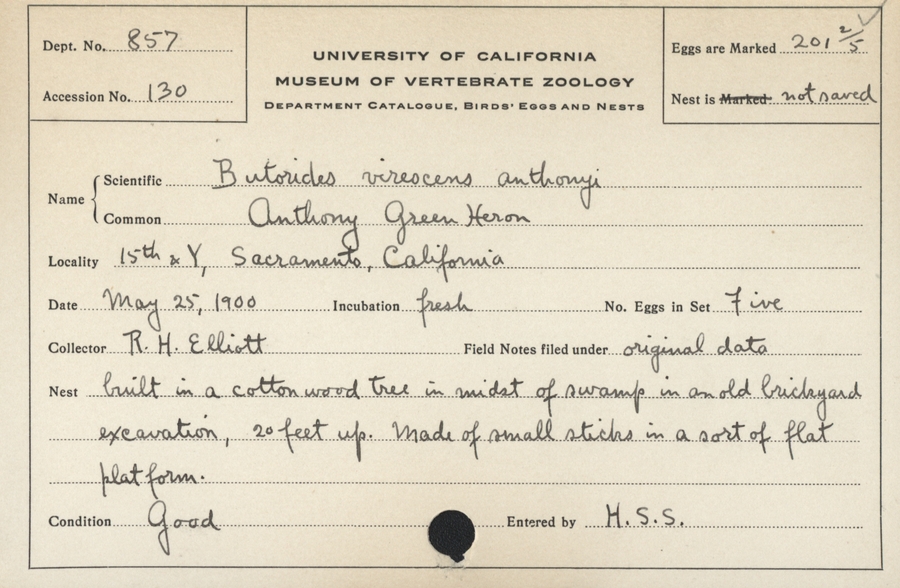 Dept. No. 857
Accession No. 130
UNIVERSITY OF CALIFORNIA
MUSEUM OF VERTEBRATE ZOOLOGY
DEPARTMENT CATALOGUE, BIRDS' EGGS AND NESTS
Eggs are Marked 201 2/5
Nest is Marked not saved
Name { Scientific Butorides virescens anthonyi
Common Anthony Green Heron
Locality 15th & Y, Sacramento, California
Date May 25, 1900 Incubation fresh No. Eggs in Set Five
Collector R. H. Elliott Field Notes filed under original data
Nest built in a cottonwood tree in midst of swamp in an old brickyard
excavation, 20 feet up. Made of small sticks in a sort of flat
platform.
Condition Good Entered by H.S.S.